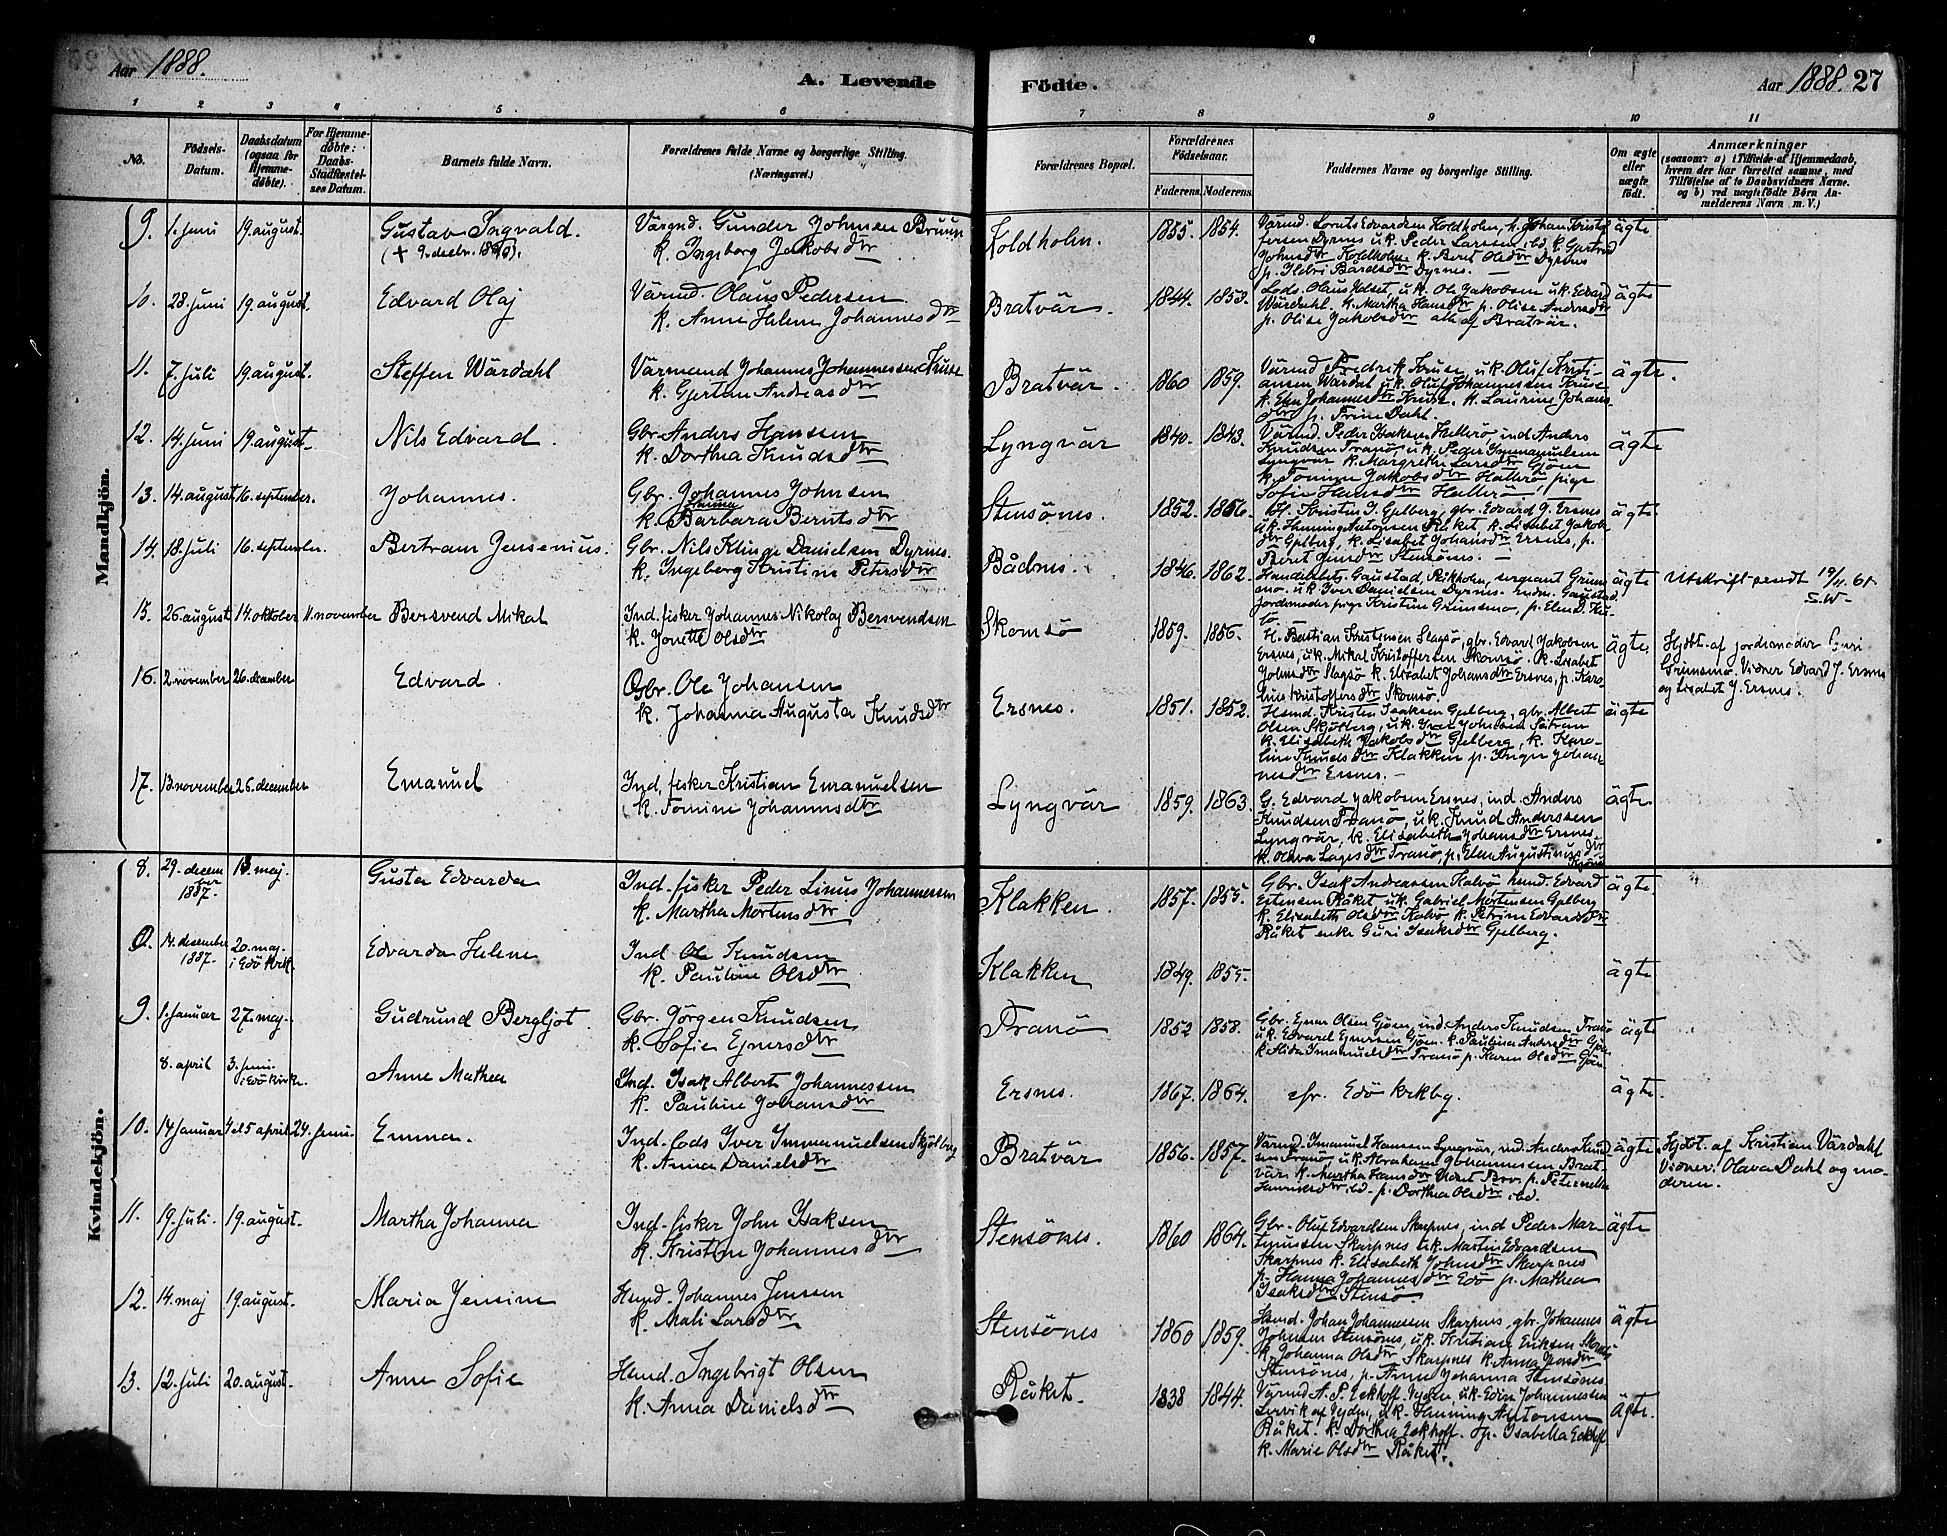 Aar 1888.
A. Levende
Födte.
Aar 1888. 27
1 2 3 4 5 6 7 8 9 10 11
No.
Födsels-
Datum.
Daabsdatum
(ogsaa for
Hjemme-
døbte).
For Hjemme-
døbte:
Daabs-
Stadfæstel-
ses Datum.
Barnets fulde Navn.
Forældrenes fulde Navne og borgerlige Stilling.
(Næringsvei.)
Forældrenes Bopæl.
Forældrenes
Födselsaar.
Faderens. Moderens.
Faddernes Navne og borgerlige Stilling.
Om ægte
eller
uægte
födt.
Anmærkninger
(saasom: a) i Tilfælde af Hjemmedaab,
hvem der har forrettet samme, med
Tilföielse af to Daabsvidners Navne.
og b) ved uægtefödte Börn An-
melderens Navn m. V.)
Mandkjön.
9. 1. juni 19. august. Gustav Ingvald.
(+ 9. decbr.
Värgnd. Gunder Johnsen Bruun
k. Ingeborg Jakobsdtr
Koldholm. 1855. 1854.
Värmd. Lorents Edvardsen Koldholm, h. Johan Kristof
fersen Dyrnes u.k. Peder Larssen ibd. k. Gjertrud
Johnsdtr Koldholm. k. Beret Olsdtr Dyrnes
p. Ildbri Bårdsdtr Dyrnes. —
ägte
10. 28. juni 19 august. Edvard Olaj
Värmd. Olaus Pedersen
k. Anne Helene Johannesdtr
Bratvär. 1844. 1853.
Lods. Olaus Udset, u.k. Ole Jakobsen u.k. Edvard
Wärdahl. k. Martha Hansdtr p. Olise Andersdtr
p. Olise Jakobsdtr alle af Bratvär.
ägte
11. 7. juli 19. august. Steffen Wärdahl
Värmand Johannes Johannessen Kruse
k. Gjertine Andreasdtr
Bratvär. 1860 1859.
Värmd Fredrik Kruse, u.k. Oluf Kristi-
ansen Wärdal u.k. Oluf Johannessen Kruse
k. Elen Johannesdtr Kruse. k. Laurine Johans
dtr p. Trine Dahl.
ägte.
12. 14. juni 19 august. Nils Edvard.
Gbr. Anders Hansen
k. Dorthea Knudsdtr
Lyngvär 1840. 1843.
Värmd. Peder Isaksen Hallerö ind Anders
Knudsen Tranö, u.k. Peder Immanuelsen
Lyngvär k. Margrethe Larsdtr Gjöen
k. Tomine Jakobsdtr Hallerö, pige
Sofie Hansdtr Hallerö. —
ägte
13. 14. august 16. september. Johannes.
Gbr. Johannes Johnsen
Johanna
k. Barbara Berntsdtr
Stensönes. 1852. 1856.
H. Kristen I. Gjelberg, gbr. Edvard J. Ersnes
u.k. Henning Antonsen Råket k. Lisabet Jakobs
dtr Gjelberg, k. Lisabet Johansdtr Ersnes, p.
Beret Jensdtr Stensönes. —
ägte
14. 18. juli 16. september. Bertram Jensenius.
Gbr. Nils Klinge Danielsen Dyrnes.
k. Ingeborg Kristine Petersdtr
Bådnes. 1846. 1862.
Handelsbetj. Gaustad, Rikholm, sergeant Grims
mo. u.k. Iver Danielsen Dyrnes. Gaustad
jordemoder pige Kristin Grimsmo, p. Elen
ägte Utskrift sendt 19/11 61
S.W-
15. 26. august 14. oktober 11. november Bersvend Mikal
Ind. fisker Johannes Nikolaj Bersvendsen
k. Jonette Olsdtr
Skomsö 1859. 1856.
H. Bastian Kristensen Slagsö, gbr. Edvard Jakobsen
Ersnes, u.k. Mikal Kristoffersen Skomsö. k. Lisabet
Johnsdtr Slagsö k. Elisabet Johansdtr Ersnes, p. Karo-
line Kristoffersdtr Skomsö.
ägte Hjdbt. af jordemoder Guri
Grimsmo. Vidner Edvard J. Ersnes
og Lisabet J. Ersnes.
16. 2. november 26. december Edvard.
Gbr. Ole Johansen
k. Johanna Augusta Knudsdtr
Ersnes. 1851. 1852.
Hsmd. Kristen Isaksen Gjelberg, gbr. Albert
Olsen Skjölberg, u.k. Iver Johnsen Sätran
k. Elisabeth Jakobsdtr Gjelberg, k. Karo-
line Knudsdtr Klakken p. Inger Johan-
nesdtr Ersnes. —
ägte
17. 13. november 26. december Emanuel
Ind. fisker Kristian Emanuelsen
k. Tomine Johannesdtr
Lyngvär 1859. 1863.
G. Edvard Jakobsen Ersnes, ind. Anders
Knudsen Tranö, u.k. Knud Anderssen
Lyngvär, k. Elisabeth Johansdtr Ersnes.
k. Olava Lagesdtr Tranö, p. Elen Augustinusdtr
ägte.
Kvindekjön.
8. 29. decem
ber
1887. 13. maj. Gusta Edvarda
Ind. fisker Peder Linus Johannessen
k. Martha Mortensdtr
Klakken. 1857. 1855.
Gbr. Isak Andreassen Kalvö, hsmd. Edvard
Estensen Råket u.k. Gabriel Mortensen Gjelberg
k. Elisabeth Olsdtr Kalvö k. Petrine Edvardsdtr
Råket enke Guri Isaksdtr Gjelberg.
ägte.
0. 14. desember
1887. 20. maj.
i Edö krk. Edvarda Helene
Ind Ole Knudsen
k. Pauline Olsdtr
Klakken 1849. 1855.
ägte
9. 1. januar 27. maj. Gudrund Bergljot.
Gbr. Jörgen Knudsen
k. Sofie Ejnersdtr
Tranö 1852 1858.
Gbr. Ejnar Olsen Gjöen, ind Anders Knudsen Tranö
u.k. Edvard Ejnersen Gjöen. k. Paulina Andersdtr Gjöen
k. Alida Imanuelsdtr Tranö p. Karen Olsdtr Gjöen
ägte
8. april 3. juni
i Edö kirke. Anne Mathea
Ind. Isak Albert Johannessen
k. Pauline Johansdtr
Ersnes. 1867. 1864.
cfr. Edö krkbg.
ägte.
10. 14 januar 4 el 5 april 24. juni. Emma.
Ind. lods Iver Immanuelsen Skjölberg
k. Anna Danielsdtr
Bratvär 1856. 1857.
Värmd. Imanuel Hansen Lyngvär, ind. Anders Knud
sen Tranö u.k. Abraham Johannessen Brat-
vär k. Martha Hansdtr Udset Brv. p. Peternella
Henriksdtr ibd. p. Dorthea Olsdtr ibd.
ägte Hjdbt. af Kristian Värdahl
Vidner: Olava Dahl og mo-
deren.
11. 19. juli. 19. august. Martha Johanna
Ind. fisker John Isaksen
k. Kristine Johannesdtr
Stensönes. 1860 1864.
Gbr. Oluf Edvardsen Skarpnes, ind Peder Mar-
tinussen Skarpnes u.k. Martin Edvardsen
Skarpnes k. Elisabeth Johnsdtr Skarpnes
p. Hanna Johannesdtr Edö p. Mathea
Isaksdtr Stensö.
ägte
12. 14. maj 19. august. Maria Jensine
Hsmd. Johannes Jenssen
k. Mali Larsdtr
Stensönes 1860 1859.
Hsmd. Johan Johannessen Skarpnes, gbr. Johannes
Johnsen Stensönes, u.k. Kristian Eriksen
k. Johanna Olsdtr Skarpnes k. Anna Jonsdtr
Stensönes, p. Anne Johanna Stensönes
ägte
13. 12. juli 20. august. Anne Sofie
Hsmd. Ingebrigt Olsen
k. Anna Danielsdtr
Råket. 1838 1844.
Värmd A. P. Eckhoff. Vejdn, u.k. Edin Johannessen
Lervik af Vejdn, u.k. Hanning Antonsen
Råket. k. Dorthea Eckhoff. p. Isabella Eckhoff
k. Marie Olsdtr Råket.
ägte.